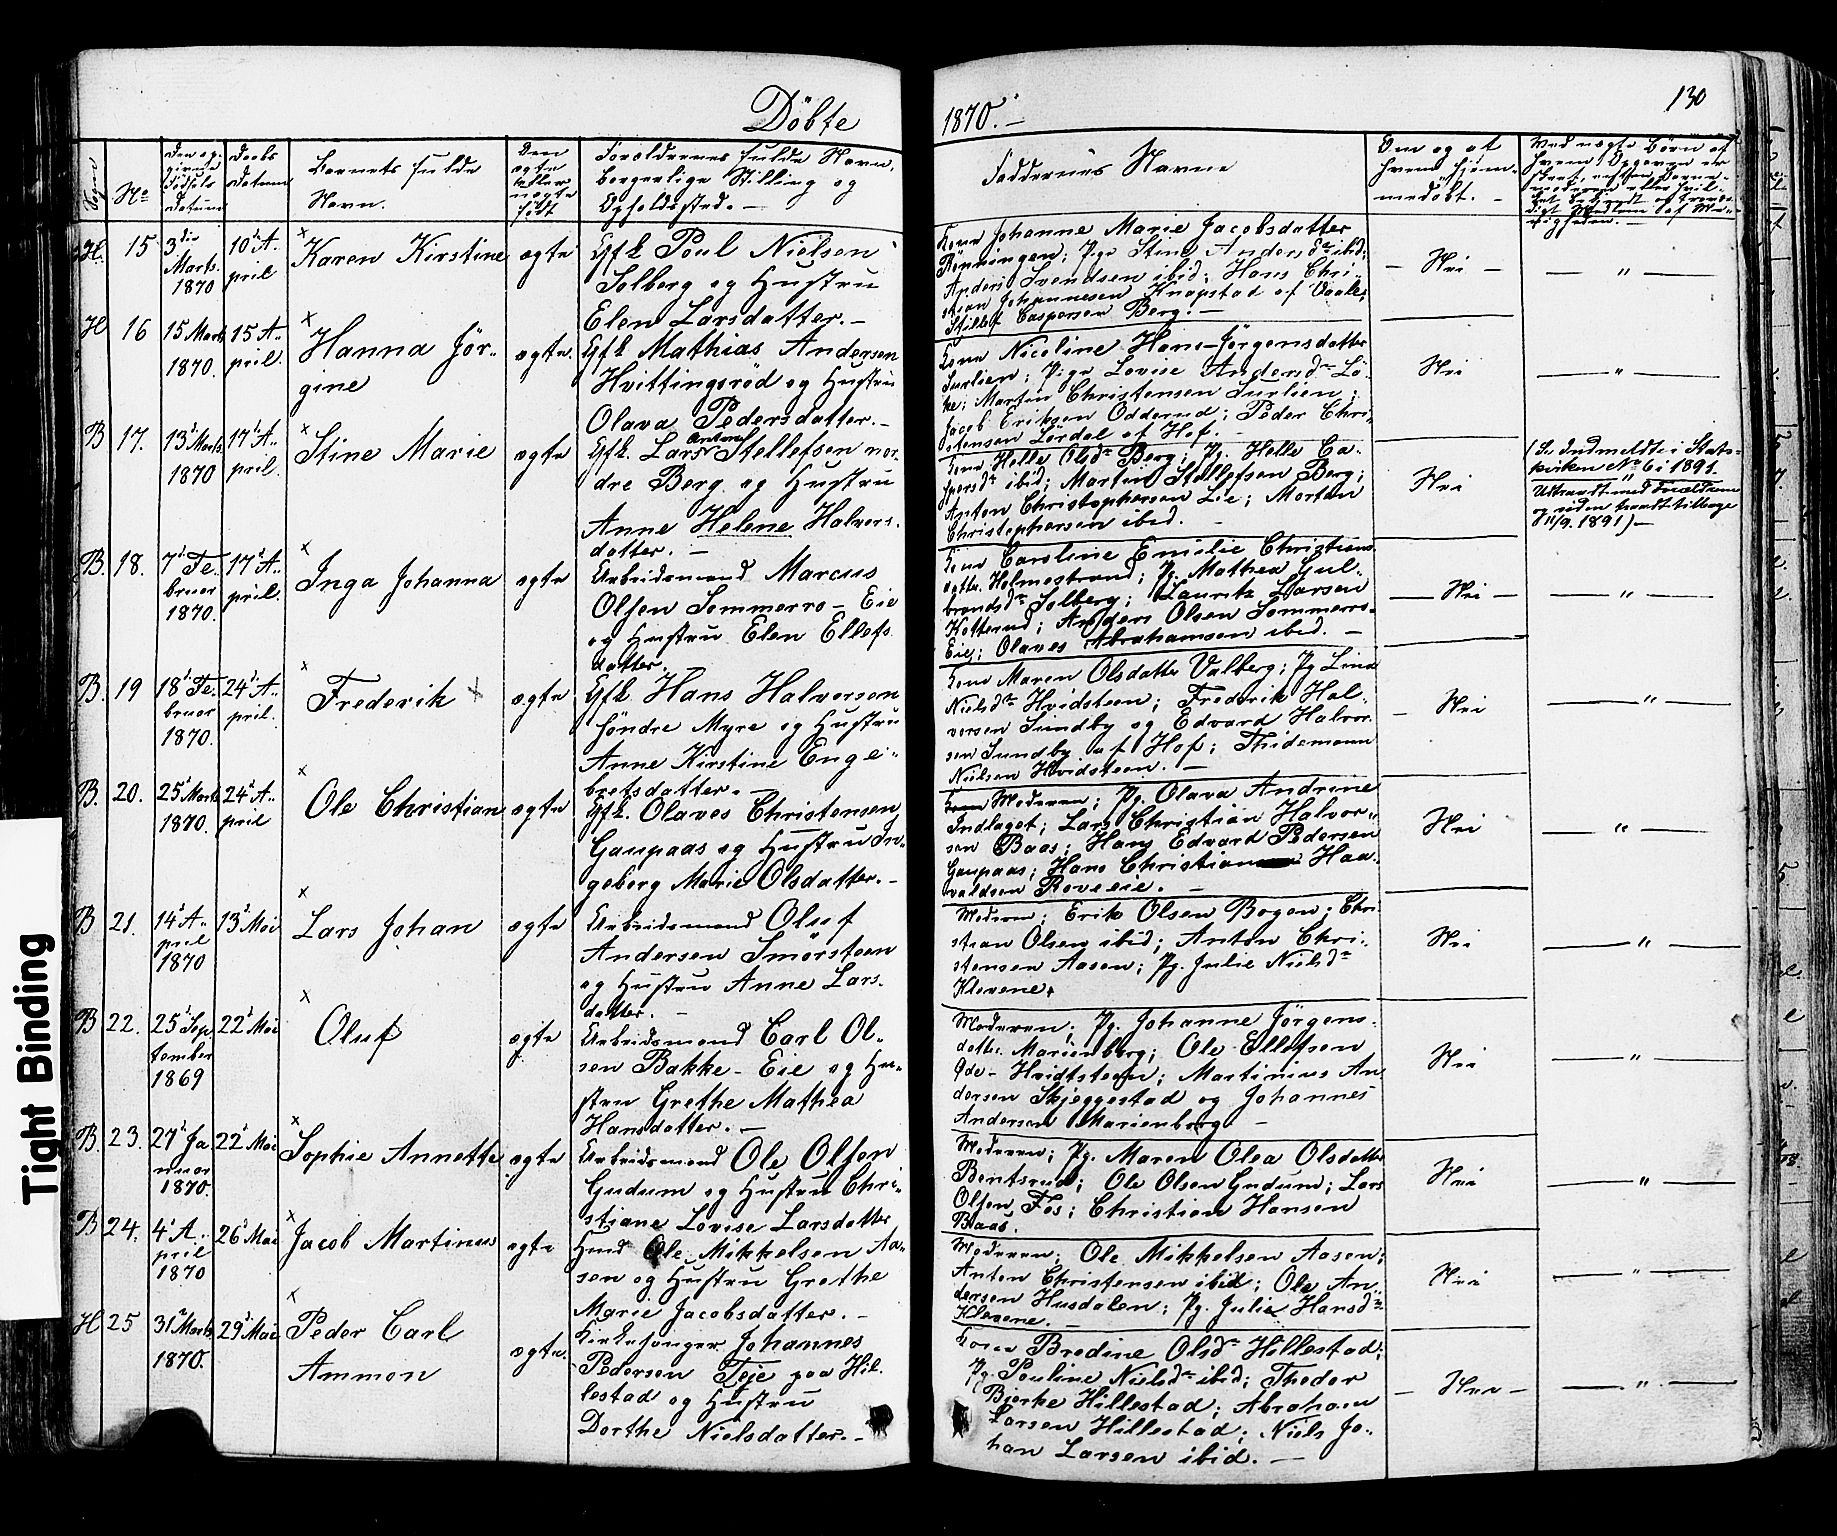 Döbte
1870. —
130
Sogn
No
Den opgivende Födsels Datum
Daabs Datum
Barnets fulde Navn.
Den ægte eller uægte født
Forældrenes fulde Navn, borgerlige Stilling og Opholdssted. —
Faddernes Navne
Om og af hvem hjemmedöbt. —
H.
15
3die Marts. 1870
10d April
Karen Kirstine
ægte
Gfk Poul Nielsen
Solberg og Hustru
Elen Larsdatter. —
Kone Johanne Marie Jacobsdatter
Rönningen; Pige Stine Andersdr ibid;
Anders Svendsen ibid; Hans Chri-
stian Johannesen Knapstad af Vaale;
Stillef Caspersen Berg. —
— Nei —
— " —
H
16
15 Marts 1870.
15 April.
Hanna Jör-
gine
ægte.
Gfk Mathias Andersen
Hvittingsröd og Hustru
Olava Pedersdatter. —
Kone Nicoline Hans-Jörgensdatter
Surlien; Pige Lovise Andersdr Lö-
ke; Martin Christensen Surlien;
Jacob Eriksen Odderud; Peder Chri-
stensen Lördal af Hof.
Nei
— " —
B
17.
13d Marts 1870
17d April.
Stine Marie
ægte
Gfk. Lars Anton Stellefsen nor-
dre Berg og Hustru
Anne Helene Halvors-
datter. —
Kone Helle Olsdr Berg; Pg. Helle Ca-
spersdr ibid; Martin Stillefsen Berg;
Anton Christophersen Lie; Morten
Christophersen ibid. —
Nei
(Se Indmeldte i Stats-
kirken No 6 i 1891.
"
Udtraadt med Forældrene
og siden traadt tilbage
11/9. 1891) —
B.
18.
7d Februar 1870.
17d April.
Inga Johanna
ægte
Arbeidsmand Marcus
Olsen Sommerro- Eie
og Hustru Elen Ellefs-
datter.
Kone Caroline Emilie Christians-
datter Holmestrand; Pg. Mathea Gul-
brandsdr Solberg; Lauritz Larsen
Kotterud; Anders Olsen Sommerro-
Eie; Olaves Abrahamsen ibid. —
— Nei —
— " —
B.
19
18d Februar 1870.
24d April.
Frederik
ægte
Gfk. Hans Halvorsen
Söndre Myre og Hustru
Anne Kirstine Enge-
bretsdatter. —
Kone Maren Olsdatter Valberg; Pg Lina
Nielsdr Hvidsteen; Frederik Hal-
vorsen Sundby og Edvard Halvor-
sen Sundby af Hof; Thidemann
Nielsen Hvidsteen. —
— Nei
— " —
B.
20.
25d Marts 1870.
24d April
Ole Christian
ægte
Gfk. Olaves Christensen
Gaupaas og Hustru In-
geborg Marie Olsdatter. —
Moderen; Pg. Olava Andrine
Indlaget; Lars Christian Halvor-
sen Baas; Hans Edvard Pedersen
Gaupaas; Hans Christian Haa-
valdsen Roveeie. —
Nei
— " —
B
21.
14d April 1870
13d Mai
Lars Johan
ægte
Arbeidsmand Oluf
Andersen Smörsteen
og Hustru Anne Lars-
datter. —
Moderen; Erik Olsen Bogen; Chri-
stian Olsen ibid; Anton Chri-
stensen Aasen; Pg. Julie Nielsdr
Klevene.
Nei
— " —
B
22.
25d September 1869
22d Mai
Oluf
ægte
Arbeidsmand Carl Ol-
sen Bakke- Eie og Hu-
stru Grethe Mathea
Hansdatter. —
Moderen; Pg. Johanne Jörgens-
datter Marienborg; Ole Ellefsen
Hvidtsteen; Martinius An-
dersen Skjeggestad og Johannes
Andersen Marienborg. —
Nei
— " —
B.
23.
27d Januar 1870.
22d Mai
Sophie Annette
ægte
Arbeidsmand Ole Olsen
Gudum og Hustru Chri-
stiane Lovise Larsdatter
Moderen; Pg. Maren Olea Olsdatter
Bentsrud; Ole Olsen Gudum; Lars
Olsen Fos; Christian Hansen
Baas.
Nei
— " —
B
24.
4d April 1870
26d Mai
Jacob Martinus
ægte
Hmd Ole Mikkelsen Aa-
sen og Hustru Grethe
Marie Jacobsdatter. —
Moderen; Ole Mikkelsen Aasen;
Anton Christensen ibid; Ole An-
dersen Husdalen; Pg. Julie Hansdr
Klevene. —
Nei
— " —
H
25
31 Marts 1870.
29d Mai
Peder Carl
Ammon
ægte.
Kirkesanger Johannes
Pedersen Teje paa Hil-
lestad og Hustru
Dorthe Nielsdatter. —
Kone Bredine Olsdr Hillestad;
Pg. Pauline Nielsdr ibid; Theodor
Bjerke Hillestad; Abraham
Larsen Hillestad; Niels Jo-
han Larsen ibid. —
— Nei —
— " —
Tight Binding